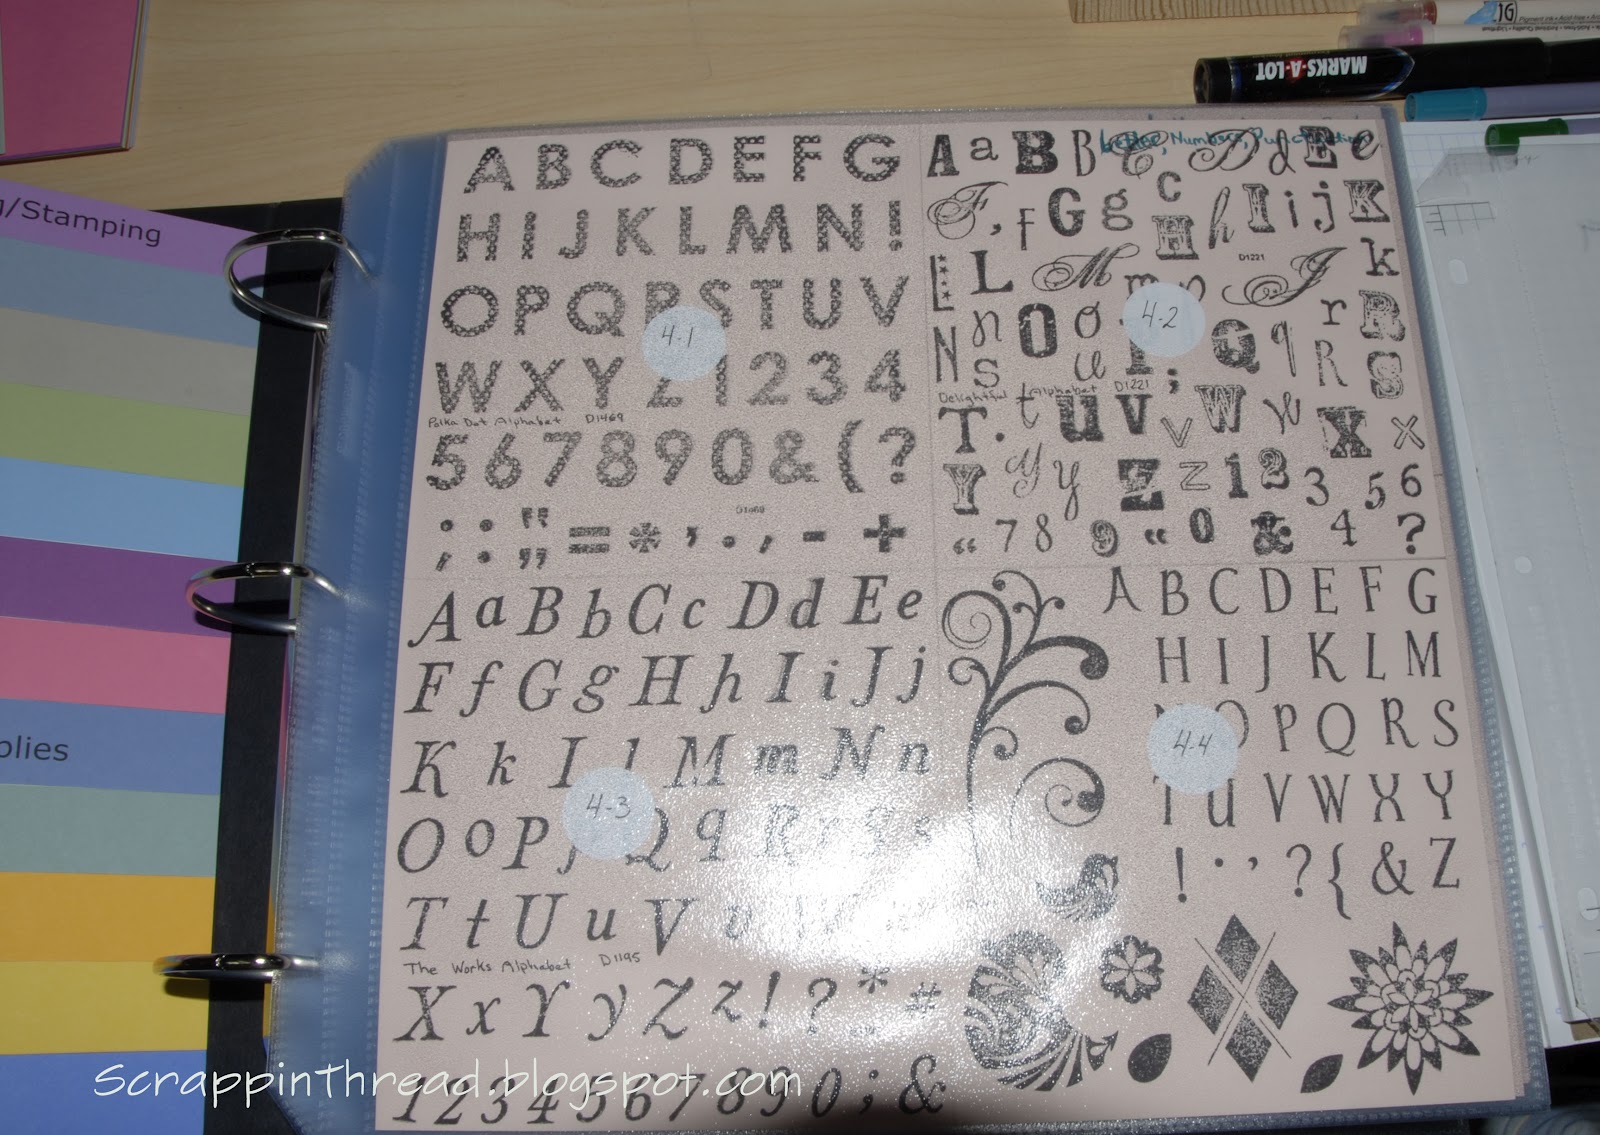 MARKS-A-LOT
g/Stamping
plies
A B C D E F G
H I J K L M N !
O P Q R S T U V
4-1
W X Y Z 1 2 3 4
Polka Dot Alphabet D1469
5 6 7 8 9 0 & ( ?
; : " = * ' . , - +
D1469
Numbers,
A a B b C D d E e
c
F , f G g H h I i j K
D1221
L L M m J k
N n O o Q q r R
4-2
S u ; R S
Delightful Alphabet D1221
T . t u V v W w X x
Y y y Z z 1 2 3 5 6
" 7 8 9 " 0 & 4 ?
A a B b C c D d E e
F f G g H h I i J j
K k L l M m N n
4-3
O o P p Q q R r S s
T t U u V v W w
The Works Alphabet D1195
X x Y y Z z ! ? *
1 2 3 4 5 6 7 8 9 0 ; &
A B C D E F G
H I J K L M
N O P Q R S
4-4
T U V W X Y
! . ' ? { & Z
Scrappinthread.blogspot.com